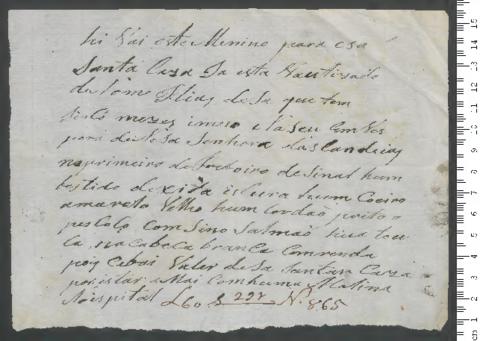 hi Vai este Menino para esa
Santa Caza Ja esta Bautizado
de nome Elias de Sa que tem
seis mezes imeio Naseu em Ves
pora de Nosa Senhora das Candeias
no primeiro de de Sinal hum
bestido de xita iscura hum Coeiro
amarelo Velho hum Cordaõ preto o
pescoso com Sino Salmaõ hua tou
ca na Cabeca branca Com renda
pois Valer de Sa Santa Caza
por istar a Mai Com huma
Nóispital L 60 f 292 N. 865